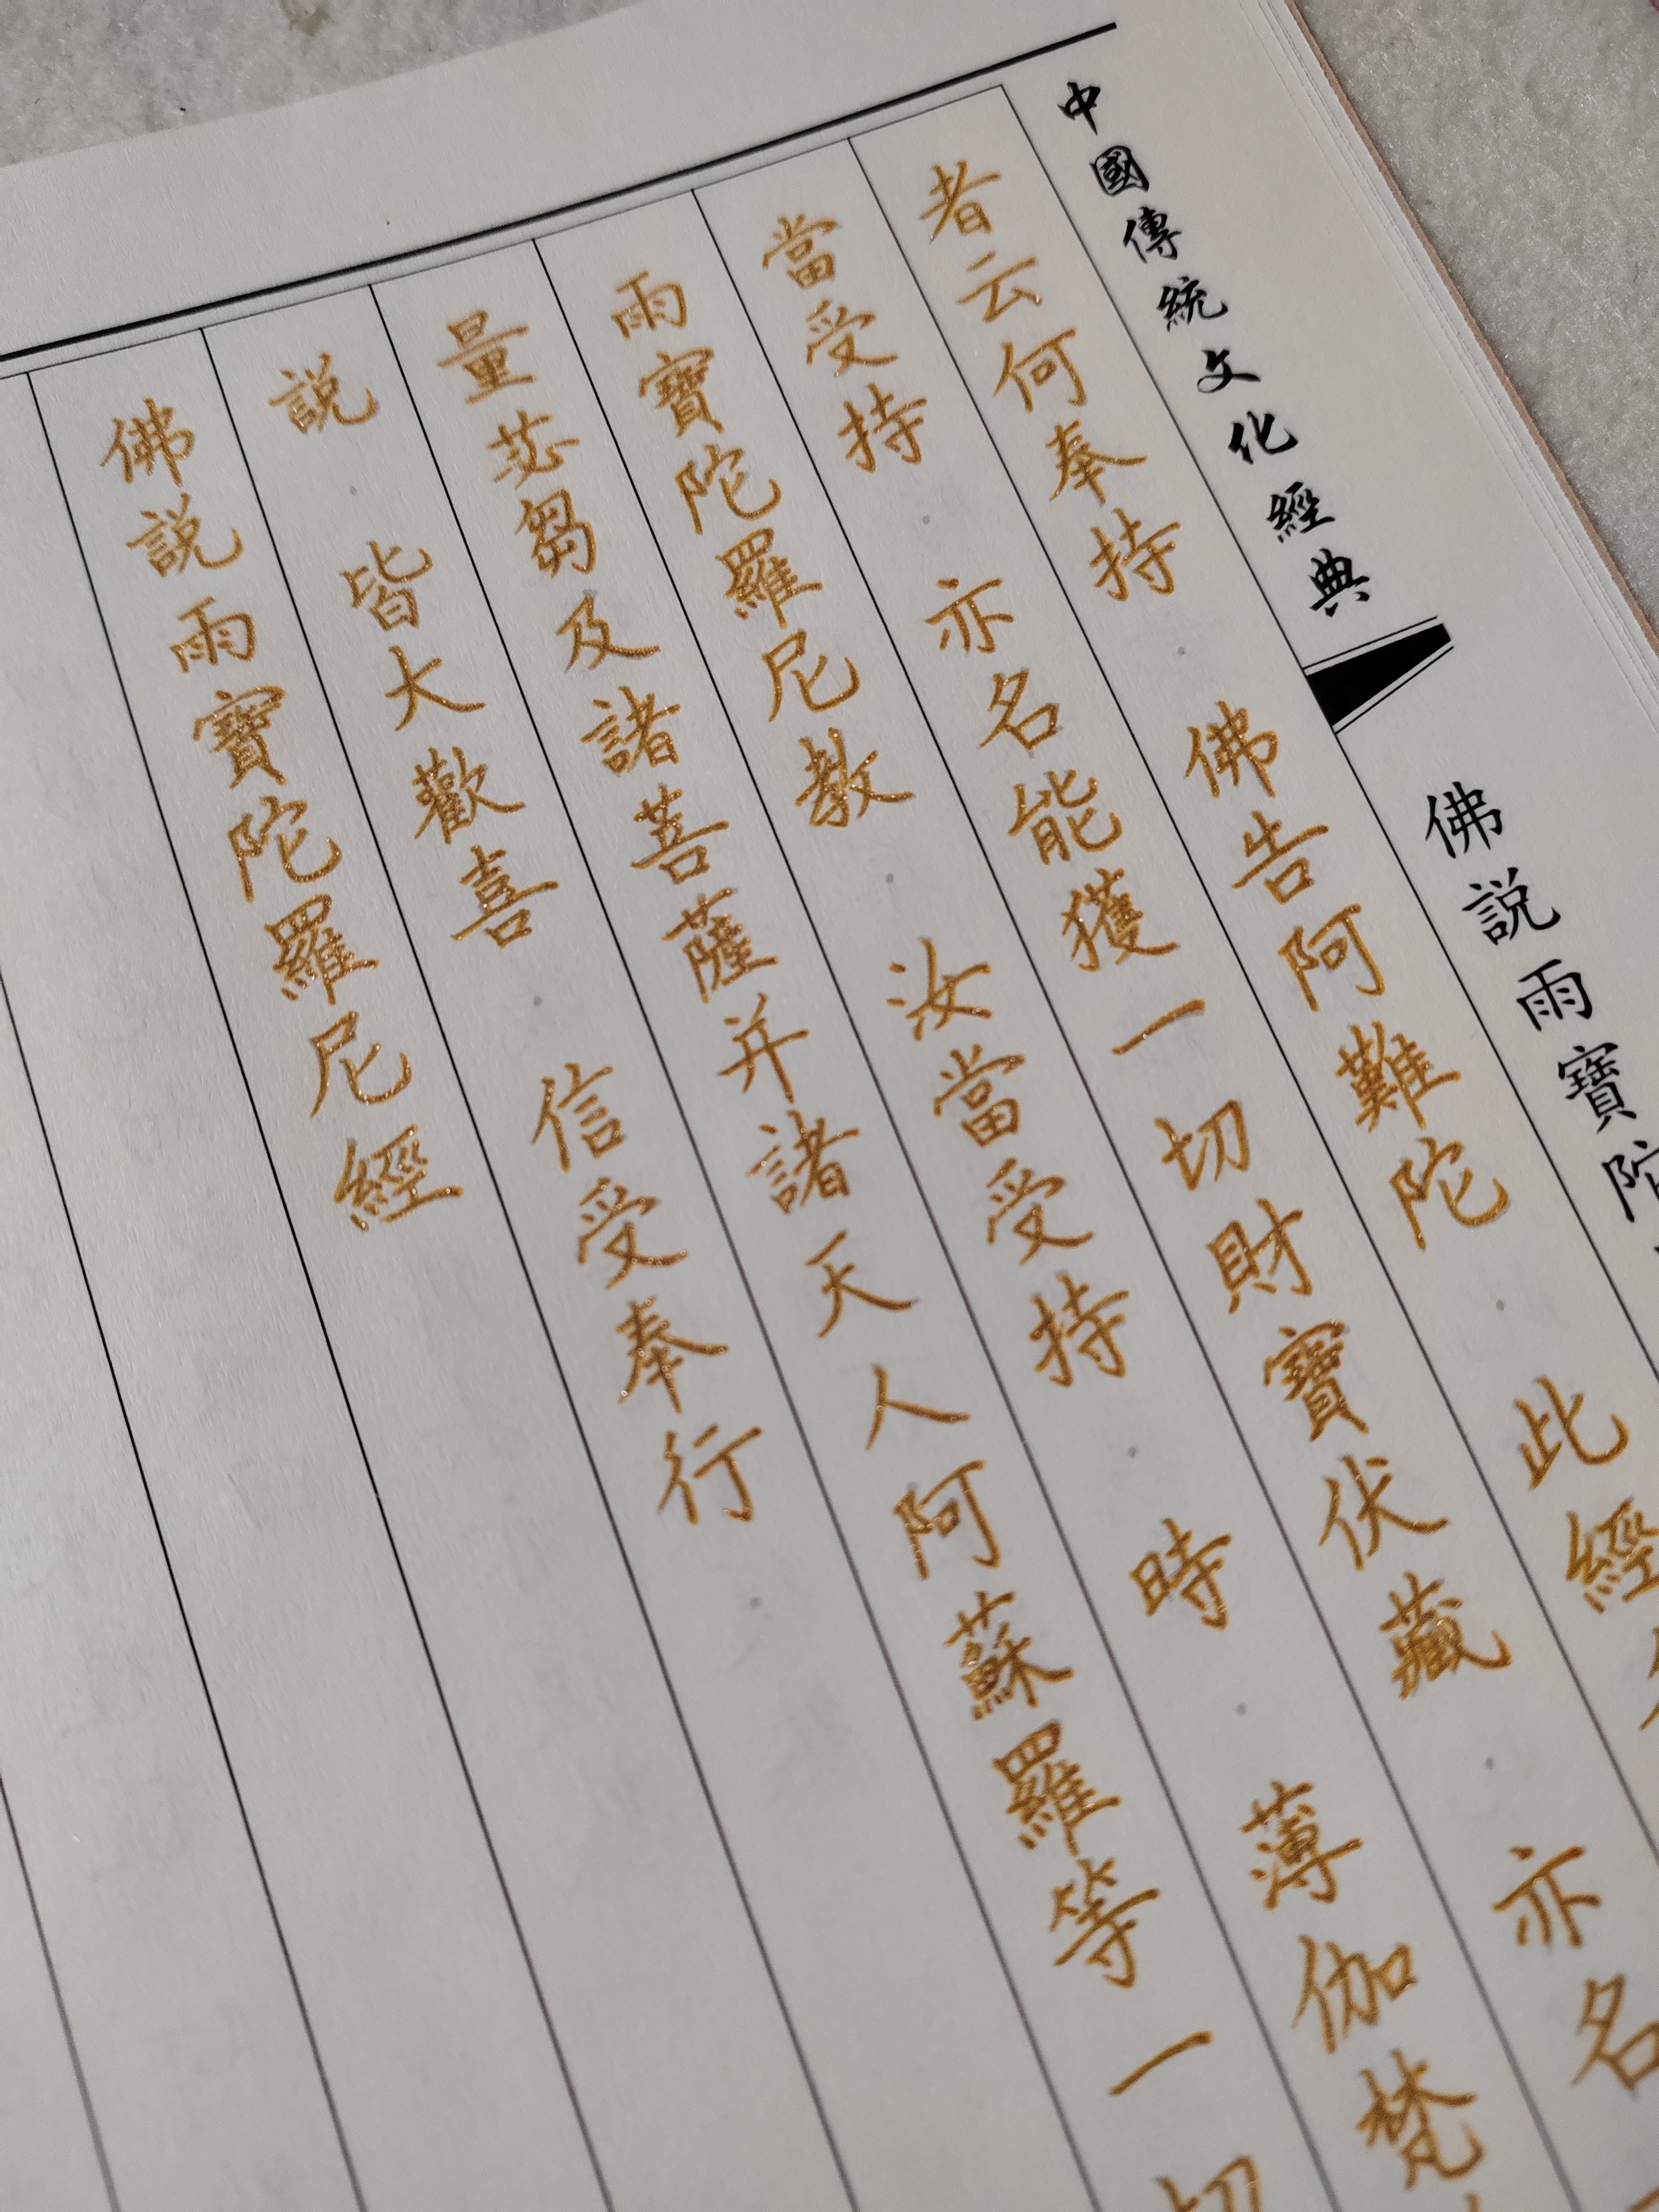 中國傳統文化經典 佛説雨寶陀
者云何奉持 佛告阿難陀 此經
當受持 亦名能獲一切財寶伏藏 亦名
雨寶陀羅尼教 汝當受持 時 薄伽梵
量苾芻及諸菩薩并諸天人阿蘇羅等一切
説 皆大歡喜 信受奉行
佛説雨寶陀羅尼經